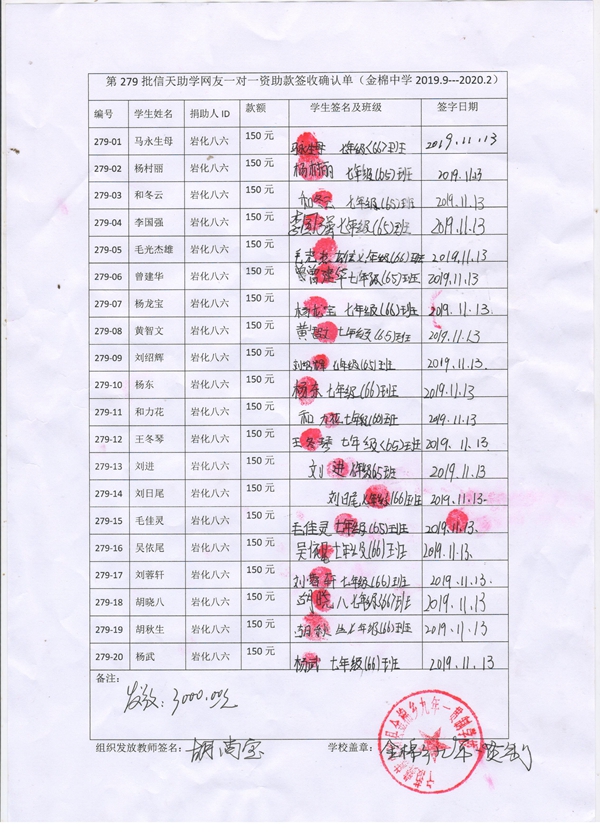 第 279 批信天助学网友一对一资助款签收确认单（金棉中学 2019.9---2020.2）
编号 学生姓名 捐助人 ID 款额 学生签名及班级 签字日期
279-01 马永生母 岩化八六 150 元 马永生母 七年级(66)班 2019.11.13
279-02 杨村丽 岩化八六 150 元 杨村丽 七年级(65)班 2019.11.13
279-03 和冬云 岩化八六 150 元 和冬云 七年级(65)班 2019.11.13
279-04 李国强 岩化八六 150 元 李国强 七年级(65)班 2019.11.13
279-05 毛光杰雄 岩化八六 150 元 七年级(66)班 2019.11.13
279-06 曾建华 岩化八六 150 元 曾建华 七年级(65)班 2019.11.13
279-07 杨龙宝 岩化八六 150 元 杨龙宝 七年级(66)班 2019.11.13.
279-08 黄智文 岩化八六 150 元 黄智文 七年级(65)班 2019.11.13
279-09 刘绍辉 岩化八六 150 元 刘绍辉 七年级(65)班 2019.11.13.
279-10 杨东 岩化八六 150 元 杨东 七年级(66)班 2019.11.13
279-11 和力花 岩化八六 150 元 和力花 七年级(66)班 2019.11.13
279-12 王冬琴 岩化八六 150 元 王冬琴 七年级(65)班 2019.11.13
279-13 刘进 岩化八六 150 元 刘进 七年级65班 2019.11.13
279-14 刘日尾 岩化八六 150 元 刘日尾 七年级(66)班 2019.11.13.
279-15 毛佳灵 岩化八六 150 元 毛佳灵 七年级(65)班 2019.11.13
279-16 吴依尾 岩化八六 150 元 吴依尾 七年级(66)班 2019.11.13.
279-17 刘蓉轩 岩化八六 150 元 刘蓉轩 七年级(66)班 2019.11.13.
279-18 胡晓八 岩化八六 150 元 胡晓八 七年级(66)班 2019.11.13
279-19 胡秋生 岩化八六 150 元 胡秋生 七年级(66)班 2019.11.13
279-20 杨武 岩化八六 150 元 杨武 七年级(66)班 2019.11.13
备注：
发放：3000.00元
组织发放教师签名： 胡尚宝 学校盖章： 金棉乡九年一贯制
金棉乡九年一贯制学校